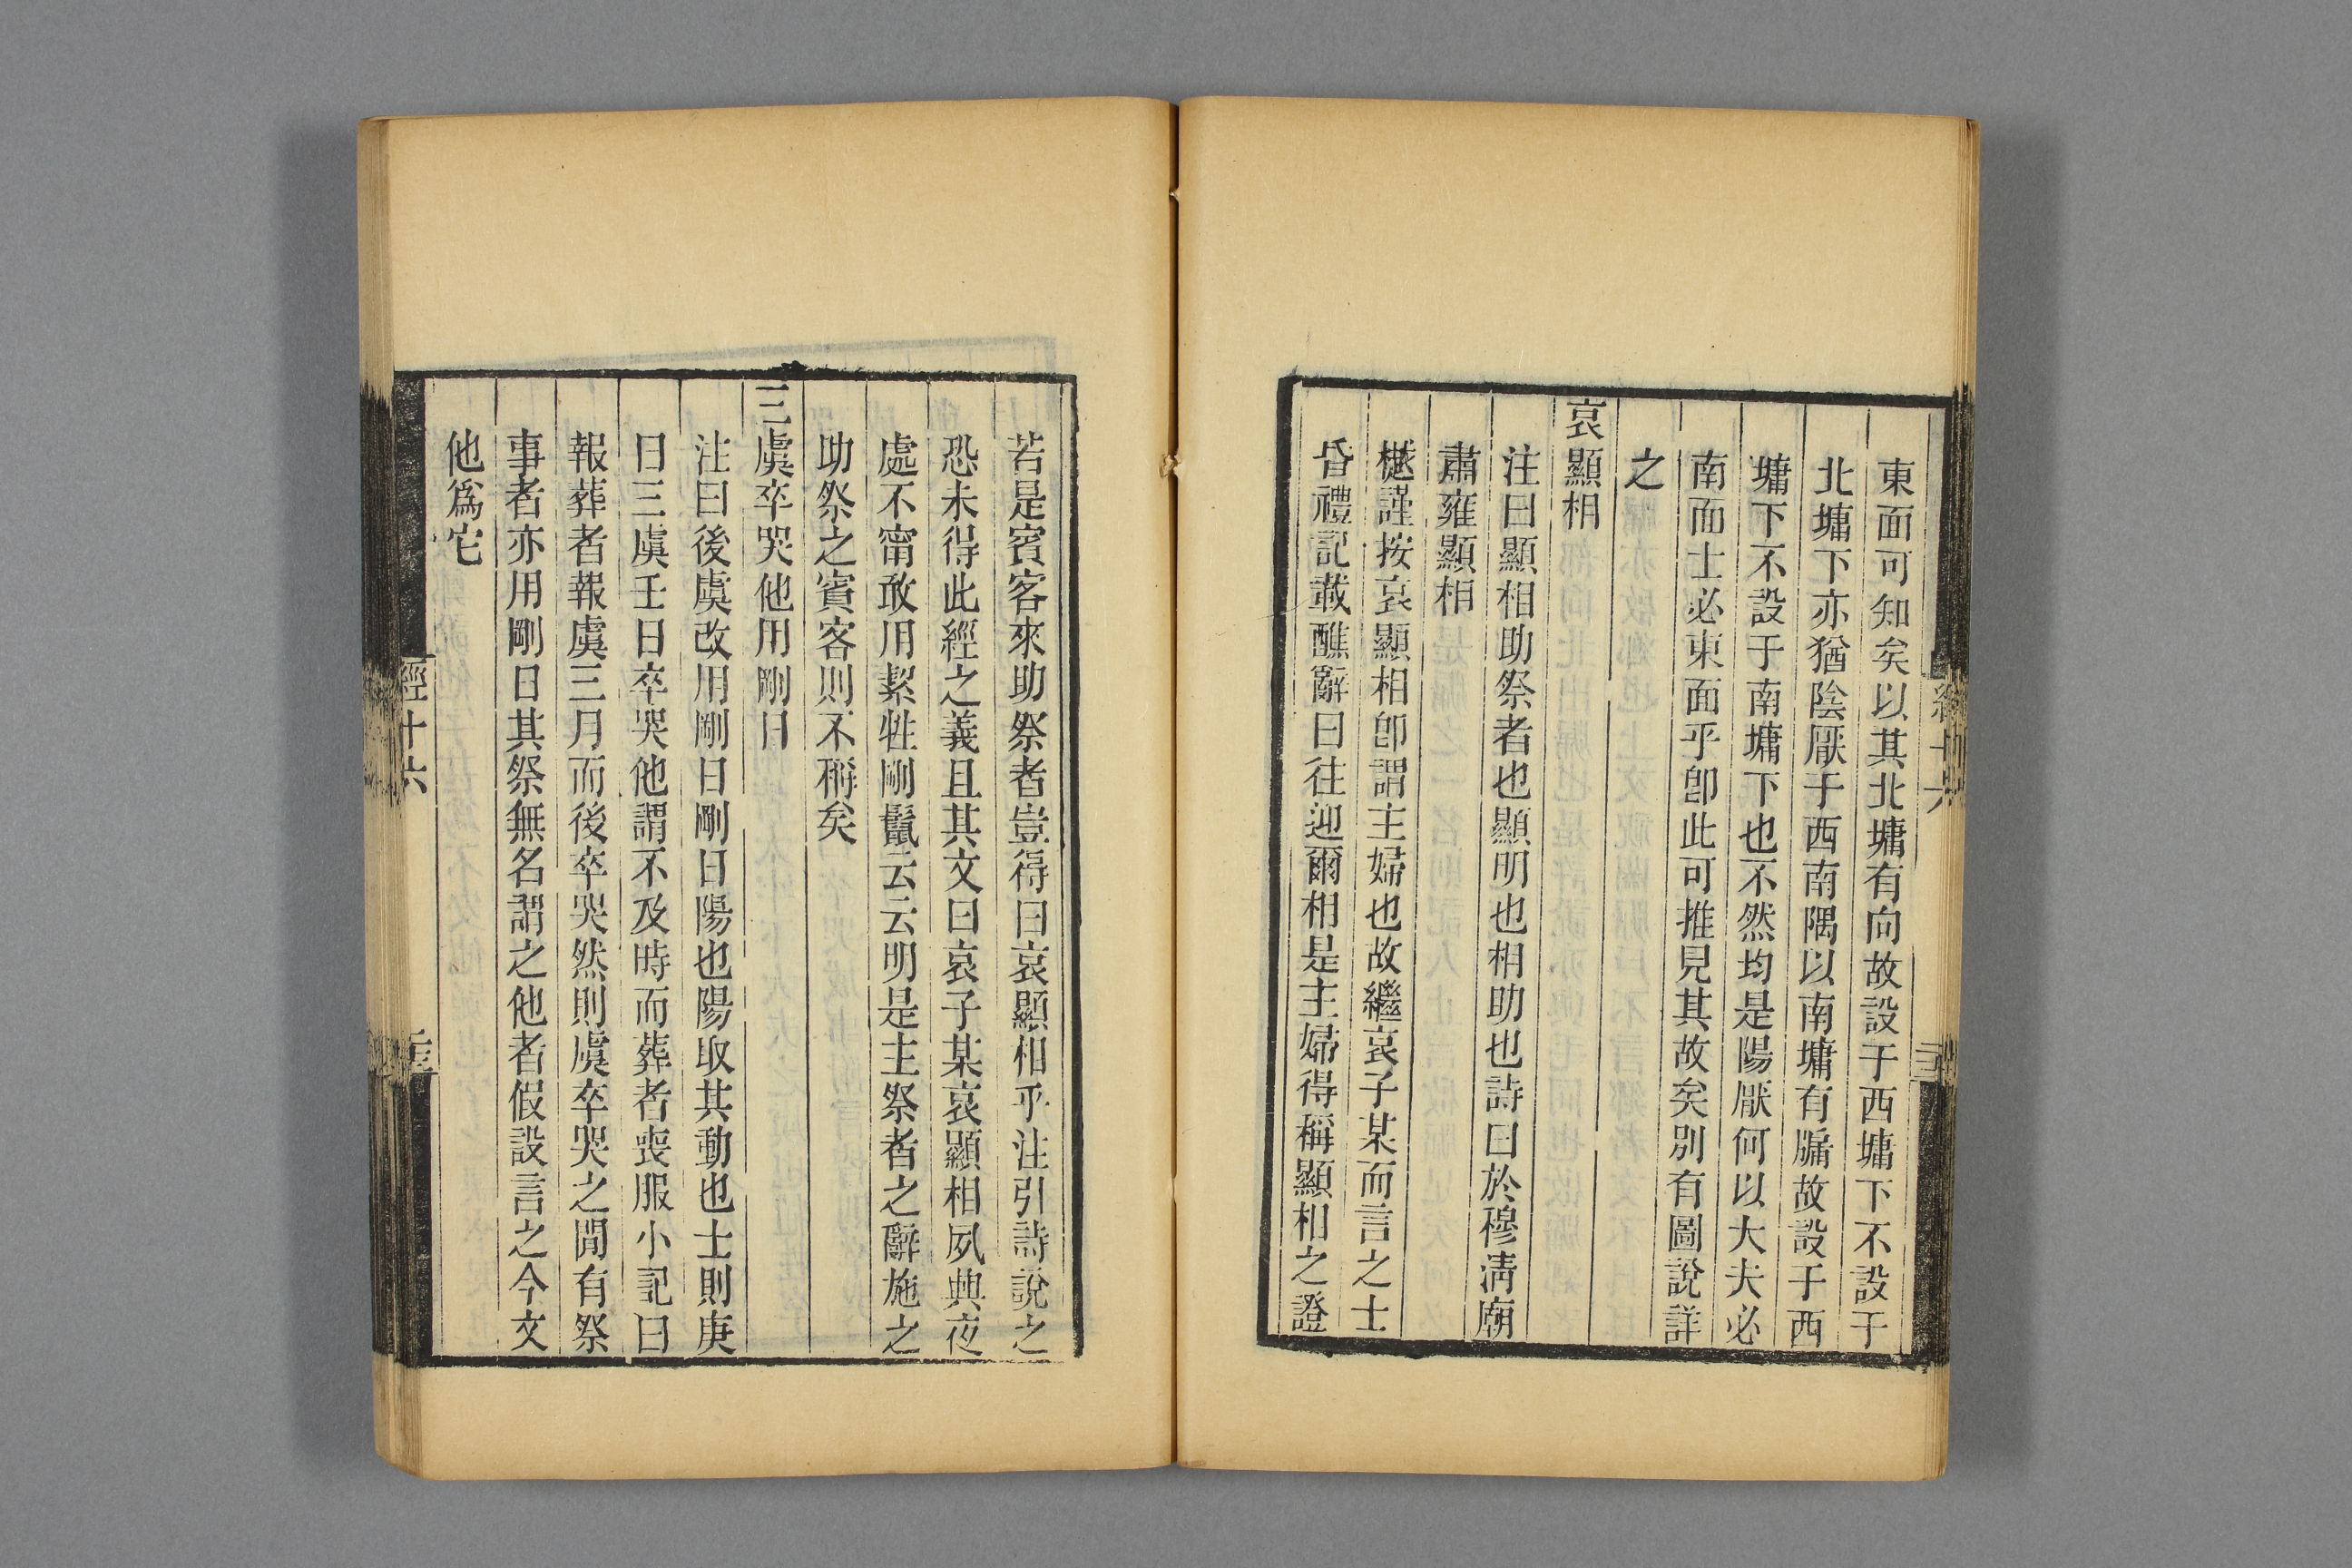 東面可知矣以其北墉有向故設于西墉下不設于
北墉下亦猶陰厭于西南隅以南墉有牖故設于西
墉下不設于南墉下也不然均是陽厭何以大夫必
南面士必東面乎卽此可推見其故矣別有圖說詳
之
哀顯相
注曰顯相助祭者也顯明也相助也詩曰於穆淸廟
肅雍顯相
樾謹按哀顯相卽謂主婦也故繼哀子某而言之士
昏禮記載醮辭曰往迎爾相是主婦得稱顯相之證
若是賓客來助祭者豈得曰哀顯相乎注引詩說之
恐未得此經之義且其文曰哀子某哀顯相夙興夜
處不甯敢用絜牲剛鬣云云明是主祭者之辭施之
助祭之賓客則不稱矣
三虞卒哭他用剛日
注曰後虞改用剛日剛日陽也陽取其動也士則庚
日三虞壬日卒哭他謂不及時而葬者喪服小記曰
報葬者報虞三月而後卒哭然則虞卒哭之閒有祭
事者亦用剛日其祭無名謂之他者假設言之今文
他爲它
經十六